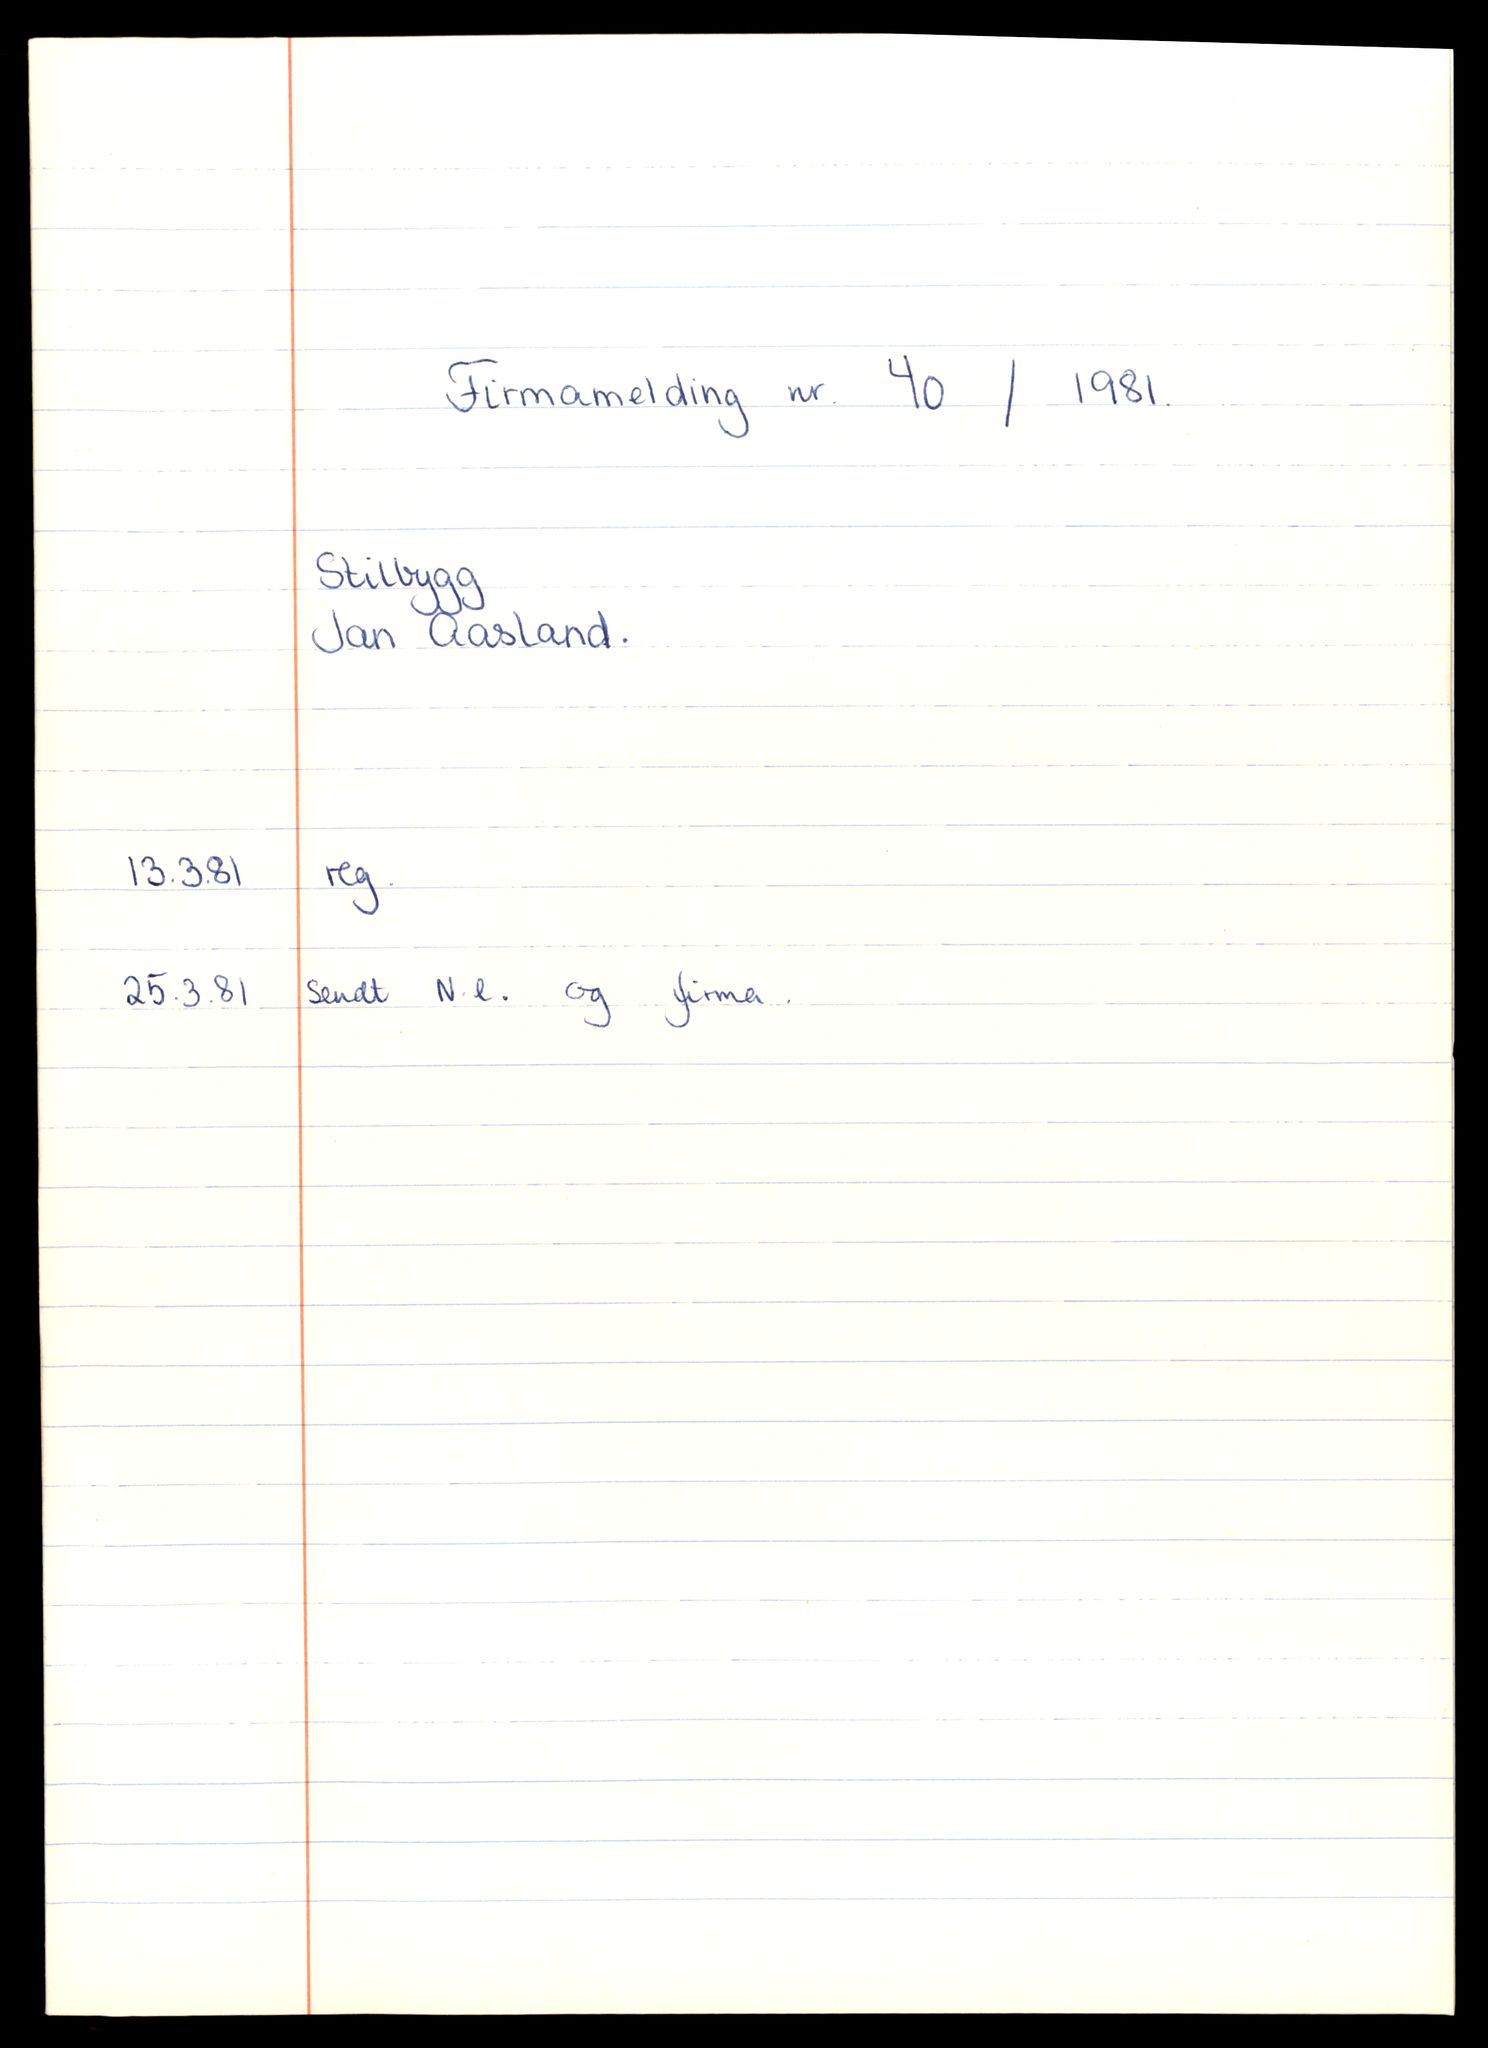 Firmamelding nr. 40 / 1981.
Stilbygg
Jan Aasland.
13.3.81 reg.
25.3.81 Sendt N.l. og firma.